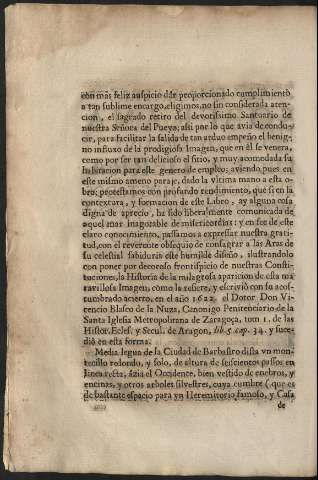 con mas feliz auspicio dàr proporcionado cumplimiento
a tan sublime encargo, eligimos, no sin considerada aten-
cion, el sagrado retiro del devotissimo Santuario de
nuestra Señora del Pueyo; assi por lo que avia de condu-
cir, para facilitar la salida de tan arduo empeño el benig-
no influxo de la prodigiosa Imagen, que en èl se venera,
como por ser tan delicioso el sitio, y muy acomodada su
habitacion para este genero de empleo; aviendo pues en
este mismo ameno parage, dado la vltima mano a esta o-
bra; protestamos con profundo rendimiento, que si en la
contextura, y formacion de este Libro, ay alguna cosa
digna de aprecio, ha sido liberalmente comunicada de
aquel mar inagotable de misericordias: y en fee de este
claro conocimiento, passamos a expressar nuestra grati-
tud, con el reverente obsequio de consagrar a las Aras de
su celestial sabiduria este humilde diseño, ilustrandolo
con poner por decoroso frontispicio de nuestras Consti-
tuciones, la Historia de la milagrosa aparicion de esta ma-
ravillosa Imagen, como la refiere, y escriviò con su acos-
tumbrado acierto, en el año 1622. el Dotor Don Vi-
cencio Blasco de la Nuza, Canonigo Penitenciario de la
Santa Iglesia Metropolitana de Zaragoça, tom 1. de las
Histor. Ecles. y Secul. de Aragon, lib. 5. cap. 34. y suce-
diò en esta forma.
Media legua de la Ciudad de Barbastro dista vn mon-
tecillo redondo, y solo, de altura de seiscientos passos en
linea recta, àzia el Occidente, bien vestido de enebros, y
encinas, y otros arboles silvestres, cuya cumbre (que es
de bastante espacio para vn Heremitorio famoso, y Casa
de